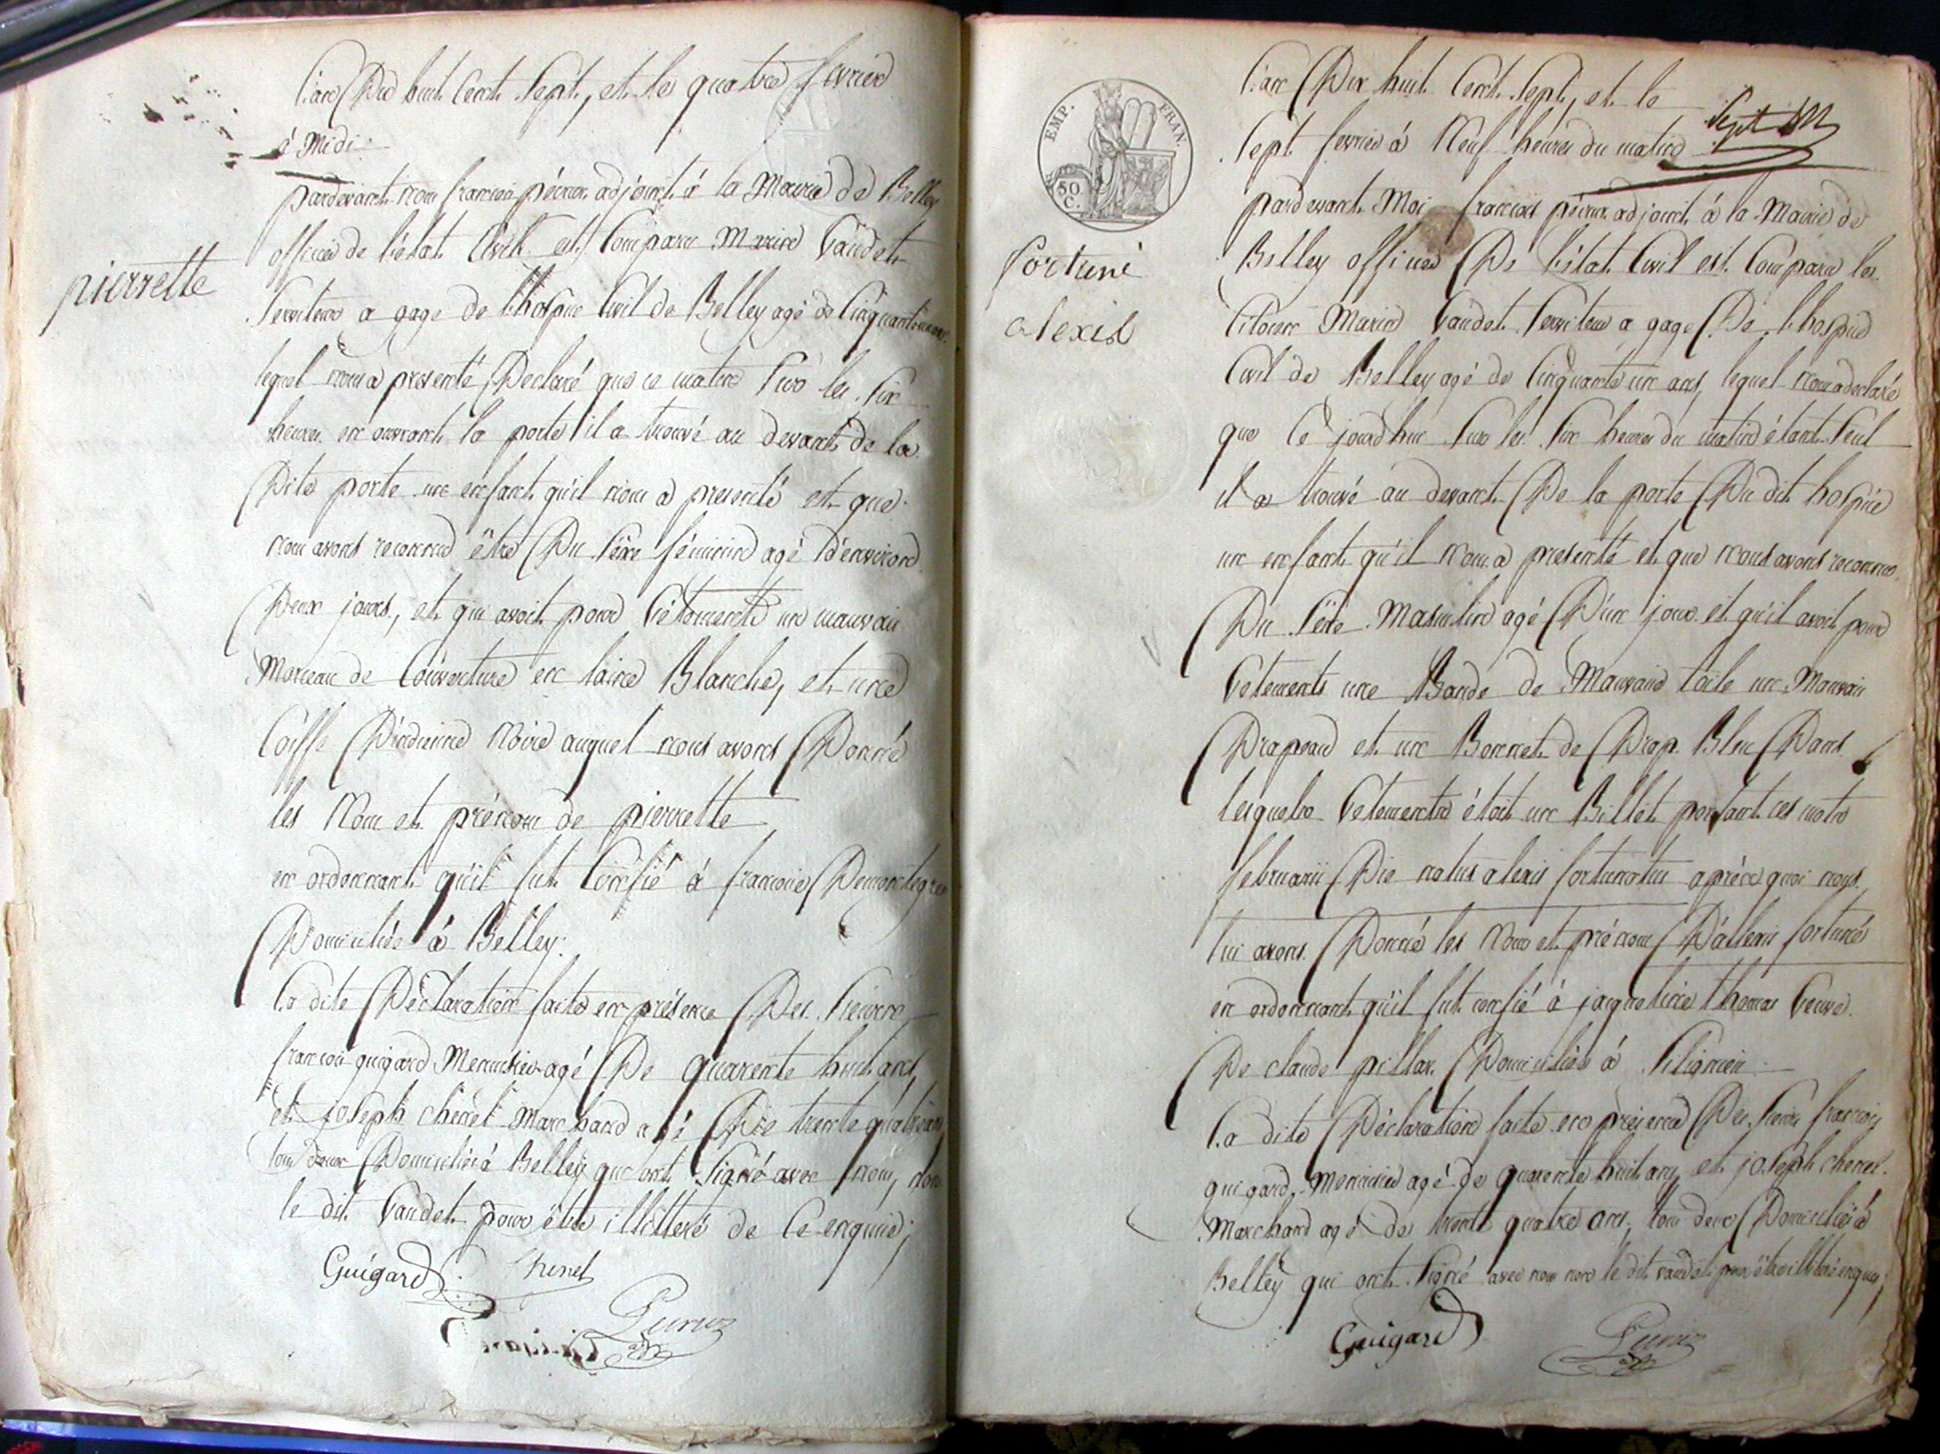 pierrette
L'an Dix huit Cent Sept, et le quatre fevrier
à Midi
pardevant nous françois péruz adjoint à la Mairie de Belley
officier de l'état Civil est Comparu Marin Vaudet
Serviteur a gage de l'hospice Civil de Belley agé de Cinquante un ans
lequel nous a presenté, Declaré que ce matin Sur les Six
heures en ouvrant la porte il a trouvé au devant de la
Dite porte un enfant qu'il nous a presenté et que
nous avons reconnu être Du Sexe féminin agé d'environ
Deux jours, et qui avoit pour Vétements un mauvais
Morceau de Couverture en laine Blanche, et une
Coiffe D'indienne Noire auquel nous avons Donné
les Nom et prénom de pierrette
en ordonnant qu'il fut Confié à françoise
Domiciliée à Belley.
La dite Déclaration faite en présence Des Sieurs
françois guigard Menuisier agé De quarente huit ans,
et joseph chenet Marchand agé De trente quatre ans
tous deux Domiciliés à Belley qui ont Signé avec nous, non
le dit Vaudet pour être illitteré de Ce enquis;
Guigard Chenet
Peruz
EMP. FRAN.
50 C.
fortuné
alexis
L'an Dix huit Cent Sept, et le
Sept fevrier à Neuf heures du matin
pardevant Moi françois péruz adjoint à la Mairie de
Belley officier De l'état Civil est Comparu le
Citoyen Marin Vaudet Serviteur a gage De l'hospice
Civil de Belley agé de Cinquante un ans, lequel nous a declaré
que Ce jourdhui Sur les Six heures du matin étant Seul
il a trouvé au devant De la porte Du dit hospice
un enfant qu'il nous a presenté et que nous avons reconnu
Du Sexe Masculin agé D'un jour et qu'il avoit pour
Vetements une Bande de Mauvaise toile un Mauvais
Drapeau et un Bonnet de Drap Bleu Dans
lesquels Vetements étoit un Billet portant ces mots
februarii Die natus alexis fortunatus aprèce quoi nous
lui avons Donné les Nom et prénom D'alexis fortuné
en ordonnant qu'il fut confié à jaqueline thomas Veuve
De claude pillar Domiciliée à Silignieu
La dite Déclaration faite en présence Des Sieurs françois
guigard, Menuisier agé de quarente huit ans, et joseph chenet
Marchand agé de trente quatre ans, tous deux Domiciliés à
Belley qui ont Signé avec nous non le dit vaudet pour être illitteré enquis;
Guigard Peruz